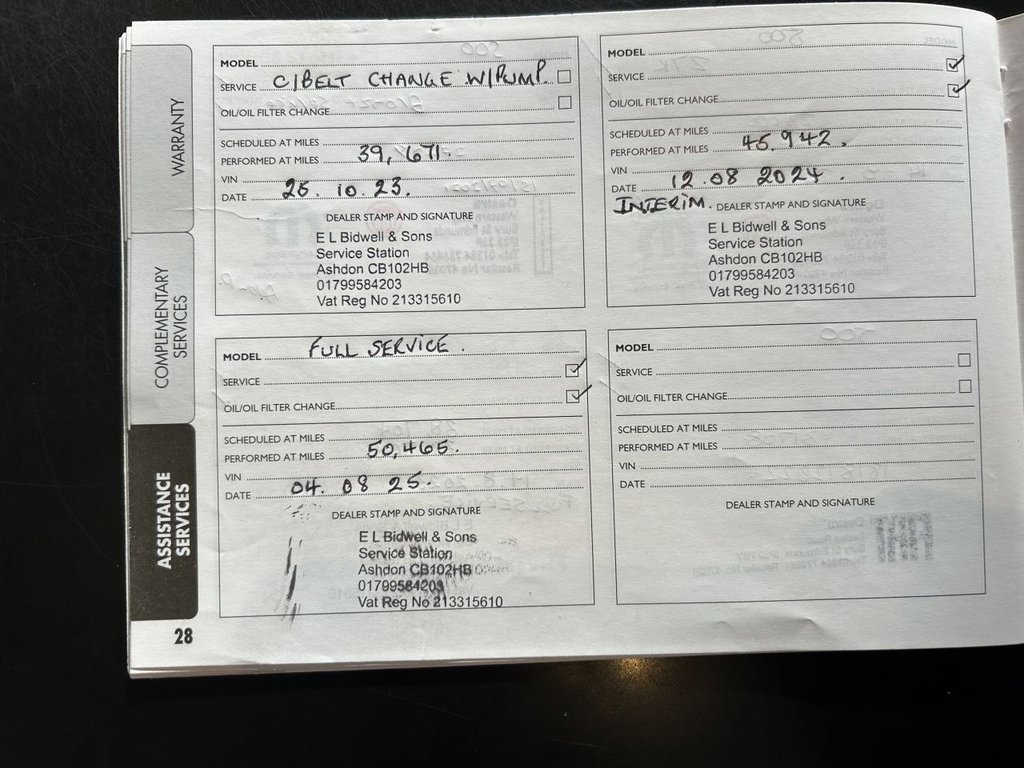 WARRANTY
COMPLEMENTARY
SERVICES
ASSISTANCE
SERVICES
28
MODEL
SERVICE C/BELT CHANGE W/PUMP.
OIL/OIL FILTER CHANGE
SCHEDULED AT MILES
PERFORMED AT MILES 39,671.
VIN
DATE 25. 10. 23.
DEALER STAMP AND SIGNATURE
E L Bidwell & Sons
Service Station
Ashdon CB102HB
01799584203
Vat Reg No 213315610
MODEL
SERVICE
OIL/OIL FILTER CHANGE
SCHEDULED AT MILES
PERFORMED AT MILES 45.942.
VIN
DATE 12.08 2024.
INTERIM. DEALER STAMP AND SIGNATURE
E L Bidwell & Sons
Service Station
Ashdon CB102HB
01799584203
Vat Reg No 213315610
MODEL FULL SERVICE.
SERVICE
OIL/OIL FILTER CHANGE
SCHEDULED AT MILES
PERFORMED AT MILES 50,465.
VIN
DATE 04. 08 25.
DEALER STAMP AND SIGNATURE
E L Bidwell & Sons
Service Station
Ashdon CB102HB
01799584203
Vat Reg No 213315610
MODEL
SERVICE
OIL/OIL FILTER CHANGE
SCHEDULED AT MILES
PERFORMED AT MILES
VIN
DATE
DEALER STAMP AND SIGNATURE